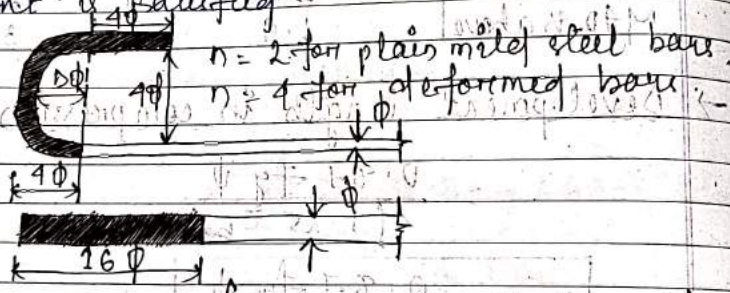 4φ
n = 2 for plain mild steel bars.
nφ
4φ
n = 4 for deformed bars.
φ
4φ
φ
16 φ